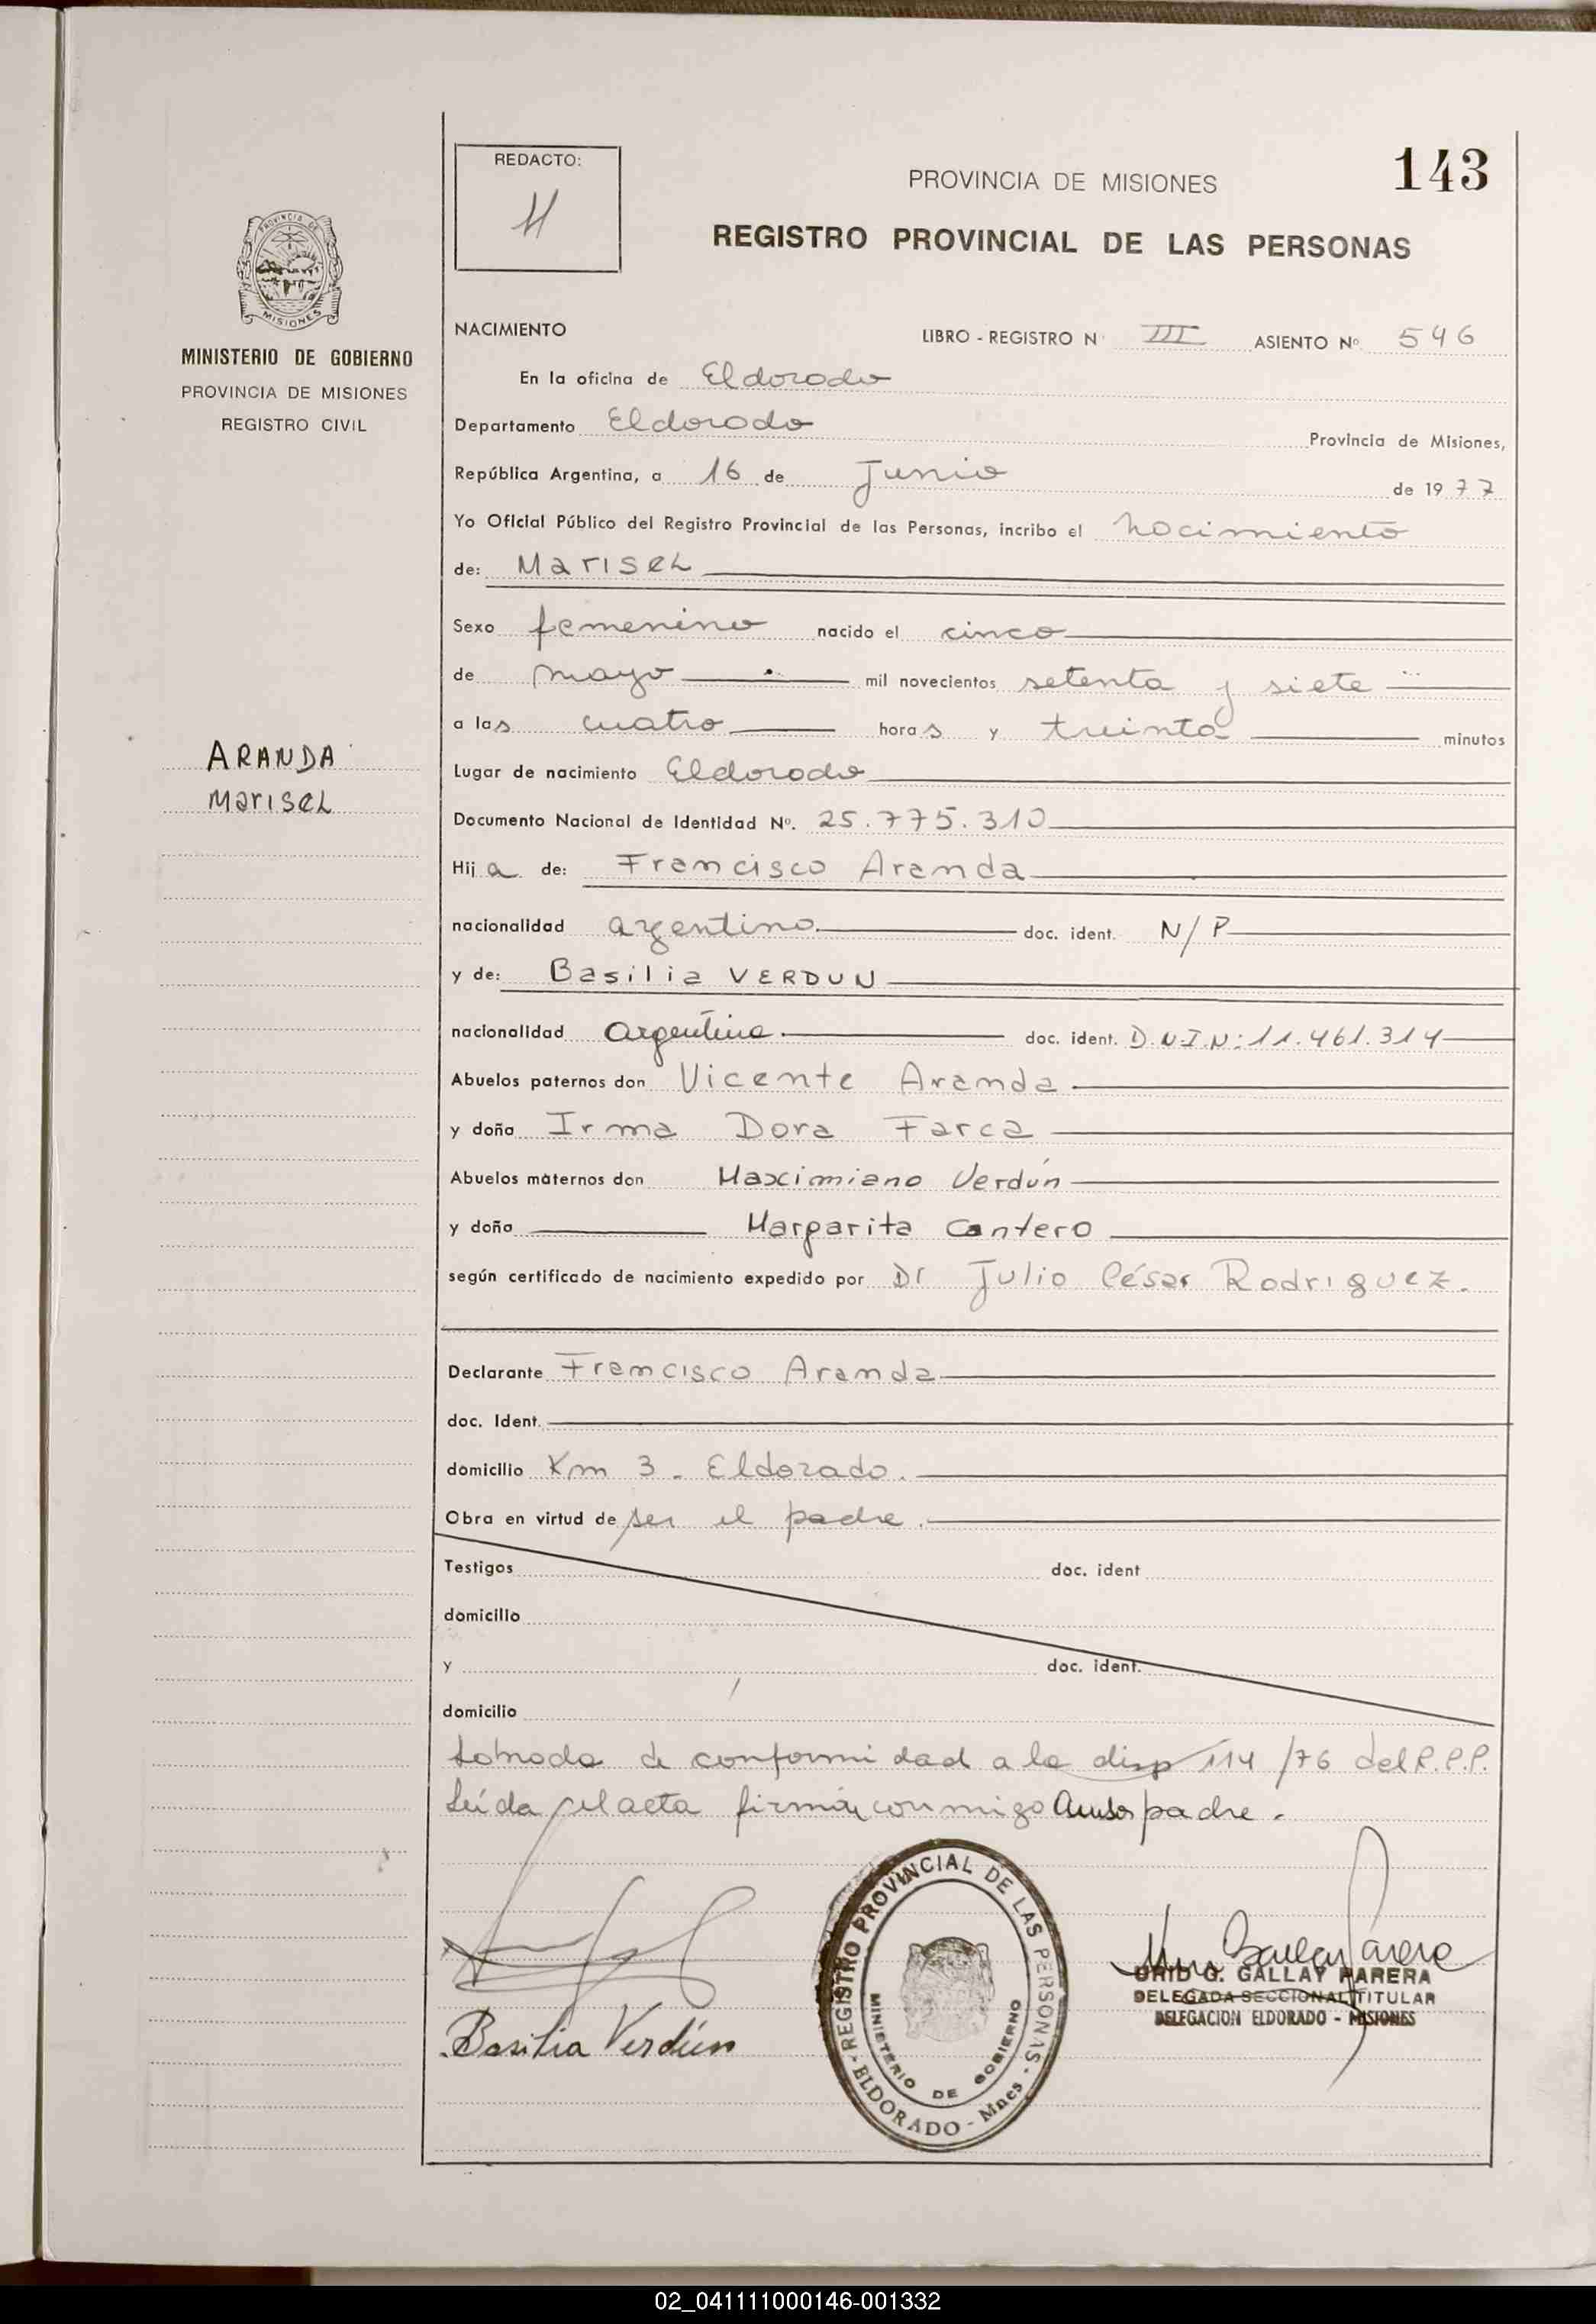 REDACTO:
PROVINCIA DE MISIONES
143
REGISTRO PROVINCIAL DE LAS PERSONAS
PROVINCIA DE
MISIONES
MINISTERIO DE GOBIERNO
PROVINCIA DE MISIONES
REGISTRO CIVIL
NACIMIENTO
LIBRO - REGISTRO N° III ASIENTO Nº 546
En la oficina de Eldorado
Departamento Eldorado Provincia de Misiones,
República Argentina, a 16 de Junio de 1977
Yo Oficial Público del Registro Provincial de las Personas, incribo el nacimiento
de: Marisel
Sexo femenino nacido el cinco
de mayo mil novecientos setenta y siete
a las cuatro horas y treinta minutos
ARANDA
Marisel
Lugar de nacimiento Eldorado
Documento Nacional de Identidad Nº. 25.775.310
Hija de: Francisco Aranda
nacionalidad argentino doc. ident. N/P
y de: Basilia VERDUN
nacionalidad argentina doc. ident. D.N.I.N: 11.461.314
Abuelos paternos don Vicente Aranda
y doña Irma Dora Farca
Abuelos maternos don Maximiano Verdún
y doña Margarita Cantero
según certificado de nacimiento expedido por Dr Julio César Rodriguez.
Declarante Francisco Aranda
doc. Ident.
domicilio Km 3 - Eldorado.
Obra en virtud de ser el padre.
Testigos doc. ident
domicilio
y doc. ident.
domicilio
de conformidad a la disp 114/76 del R.P.P.
Leída el acta firman conmigo padre.
REGISTRO PROVINCIAL DE LAS PERSONAS
MINISTERIO DE GOBIERNO
ELDORADO - Mnes
Basilia Verdún
G. GALLAY PARERA
DELEGADA SECCIONAL TITULAR
DELEGACION ELDORADO - MISIONES
02_041111000146-001332